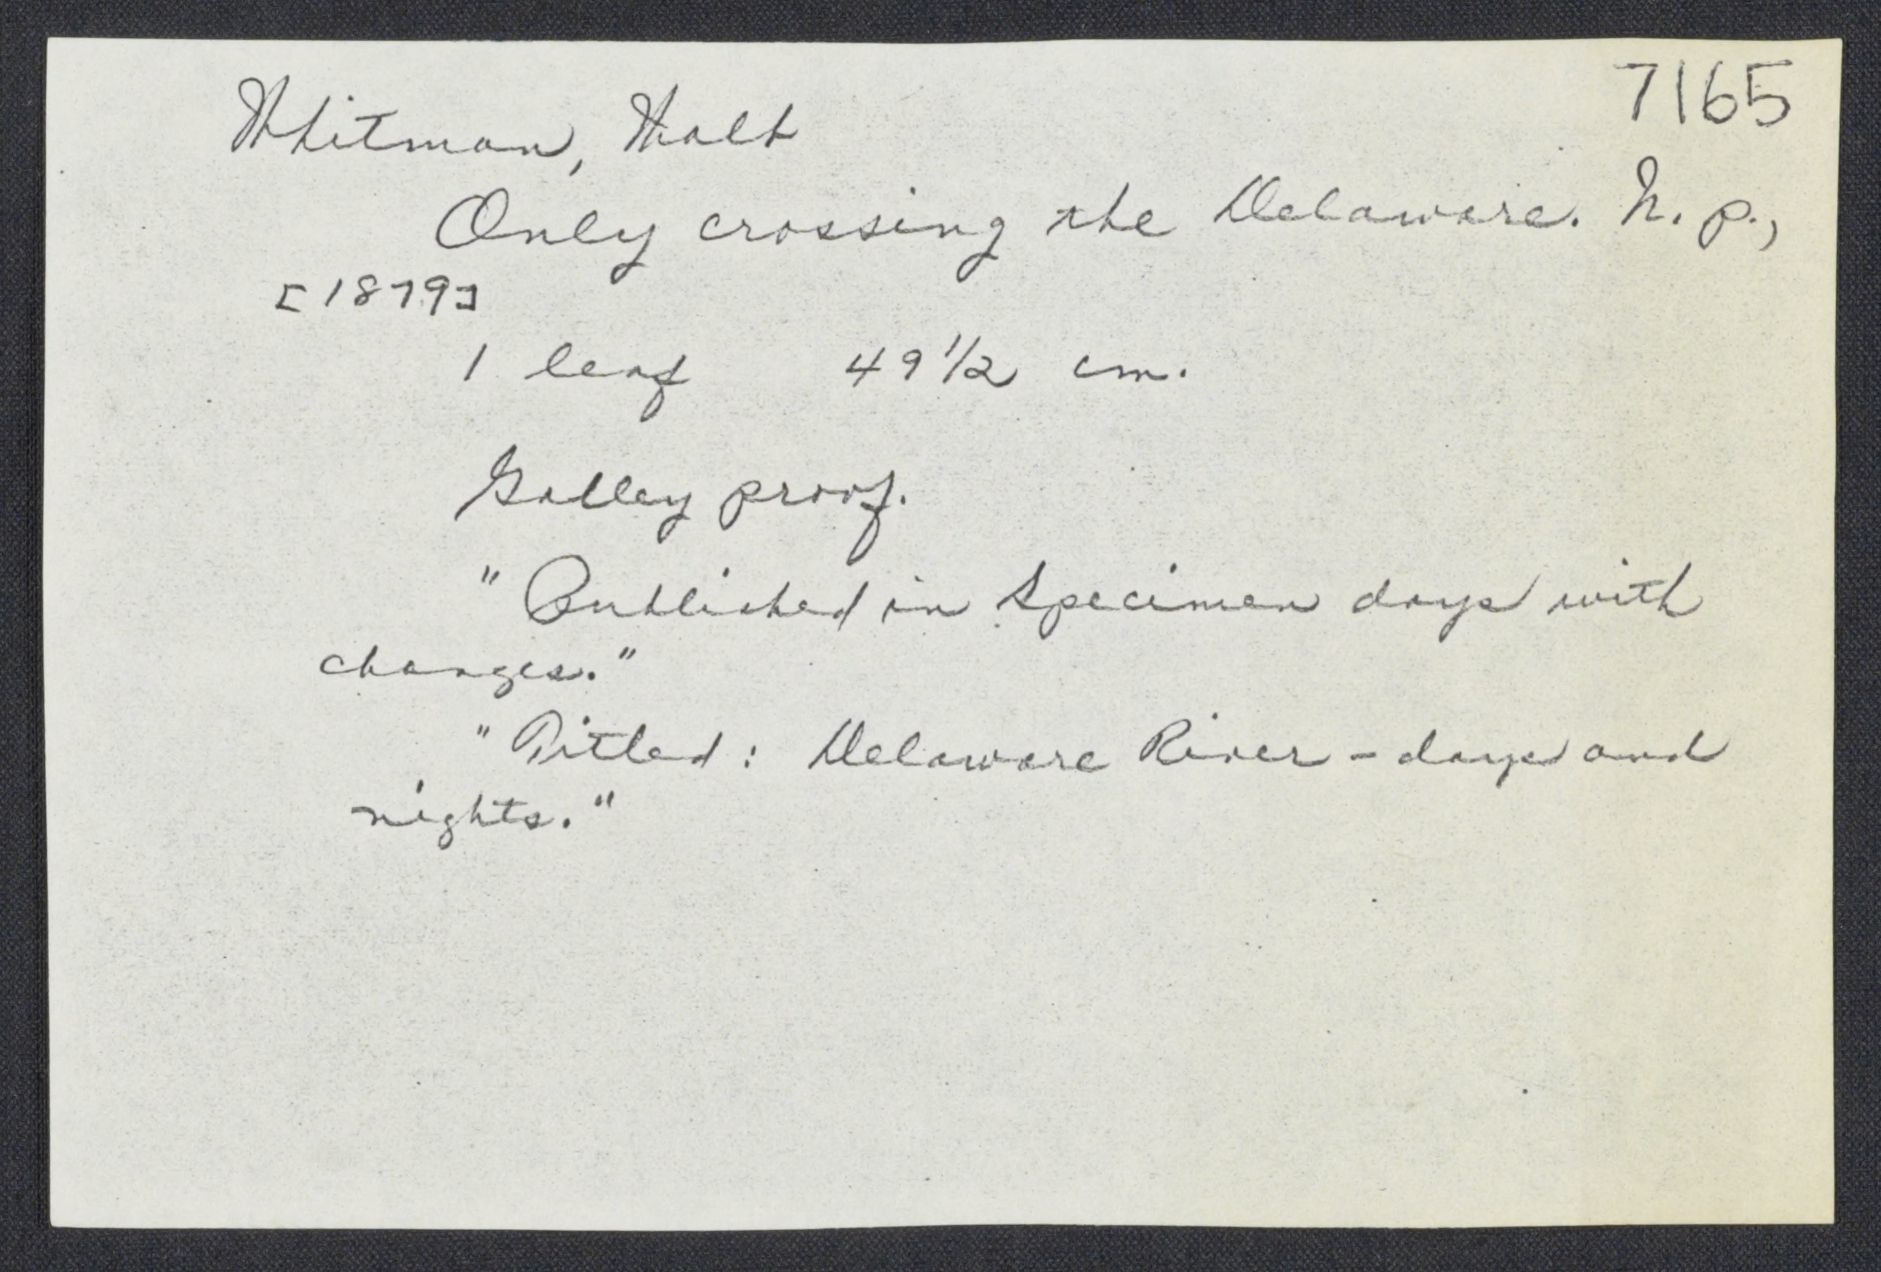 7165
Whitman, Walt
Only crossing the Delaware. N. p.,
[1879]
1 leaf 49 1/2 cm.
Galley proof.
"Published in Specimen days with
changes."
"Titled: Delaware River - days and
nights."